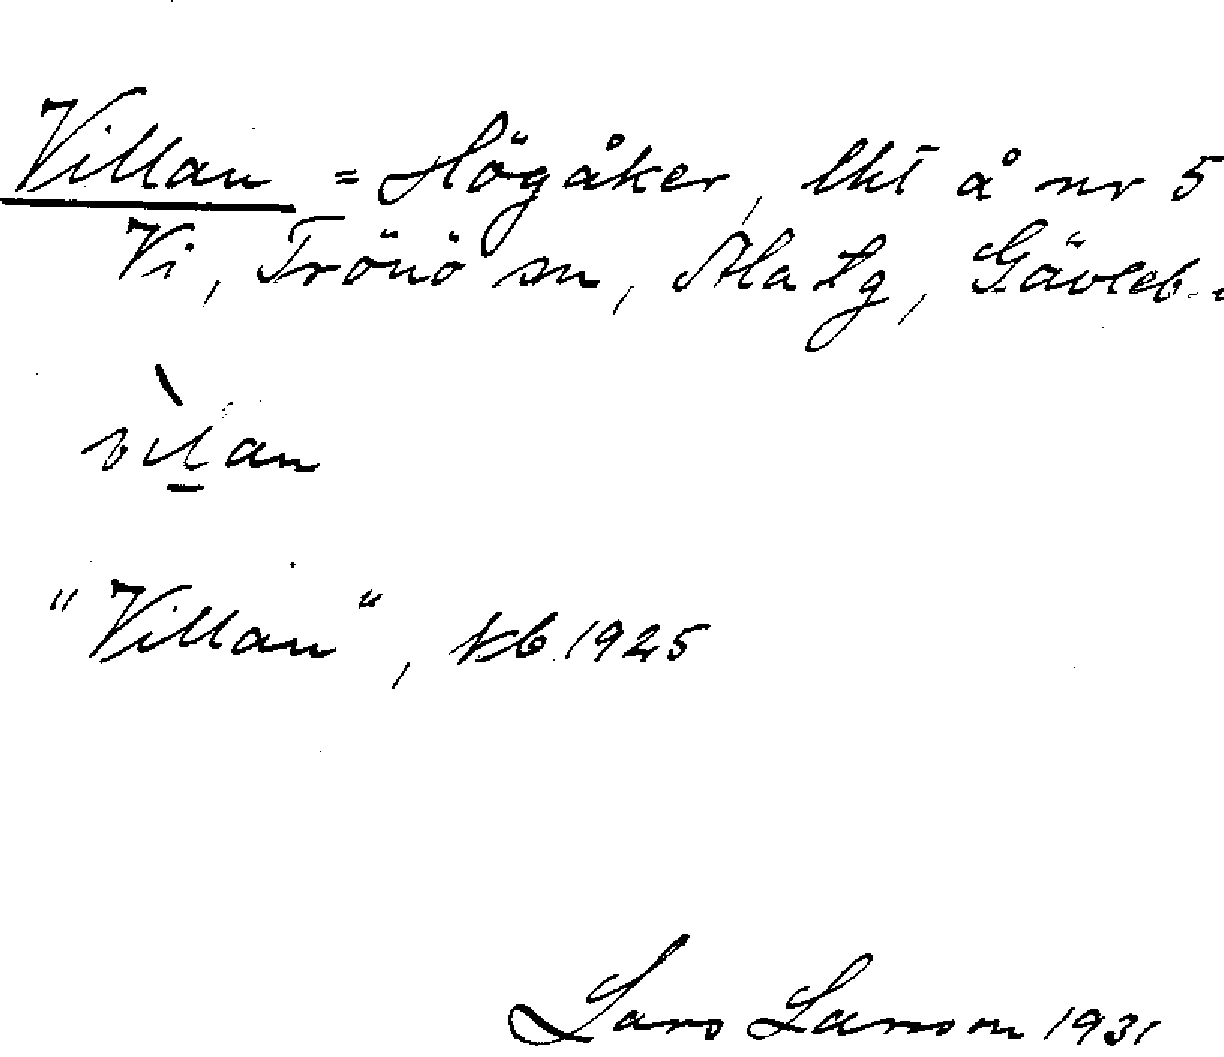 Villan = Högåker, lht å nr 5
Vi, Trönö sn, Ala tg, Gävleb.
vilan
"Villan", kb 1925
Lars Larsson 1931